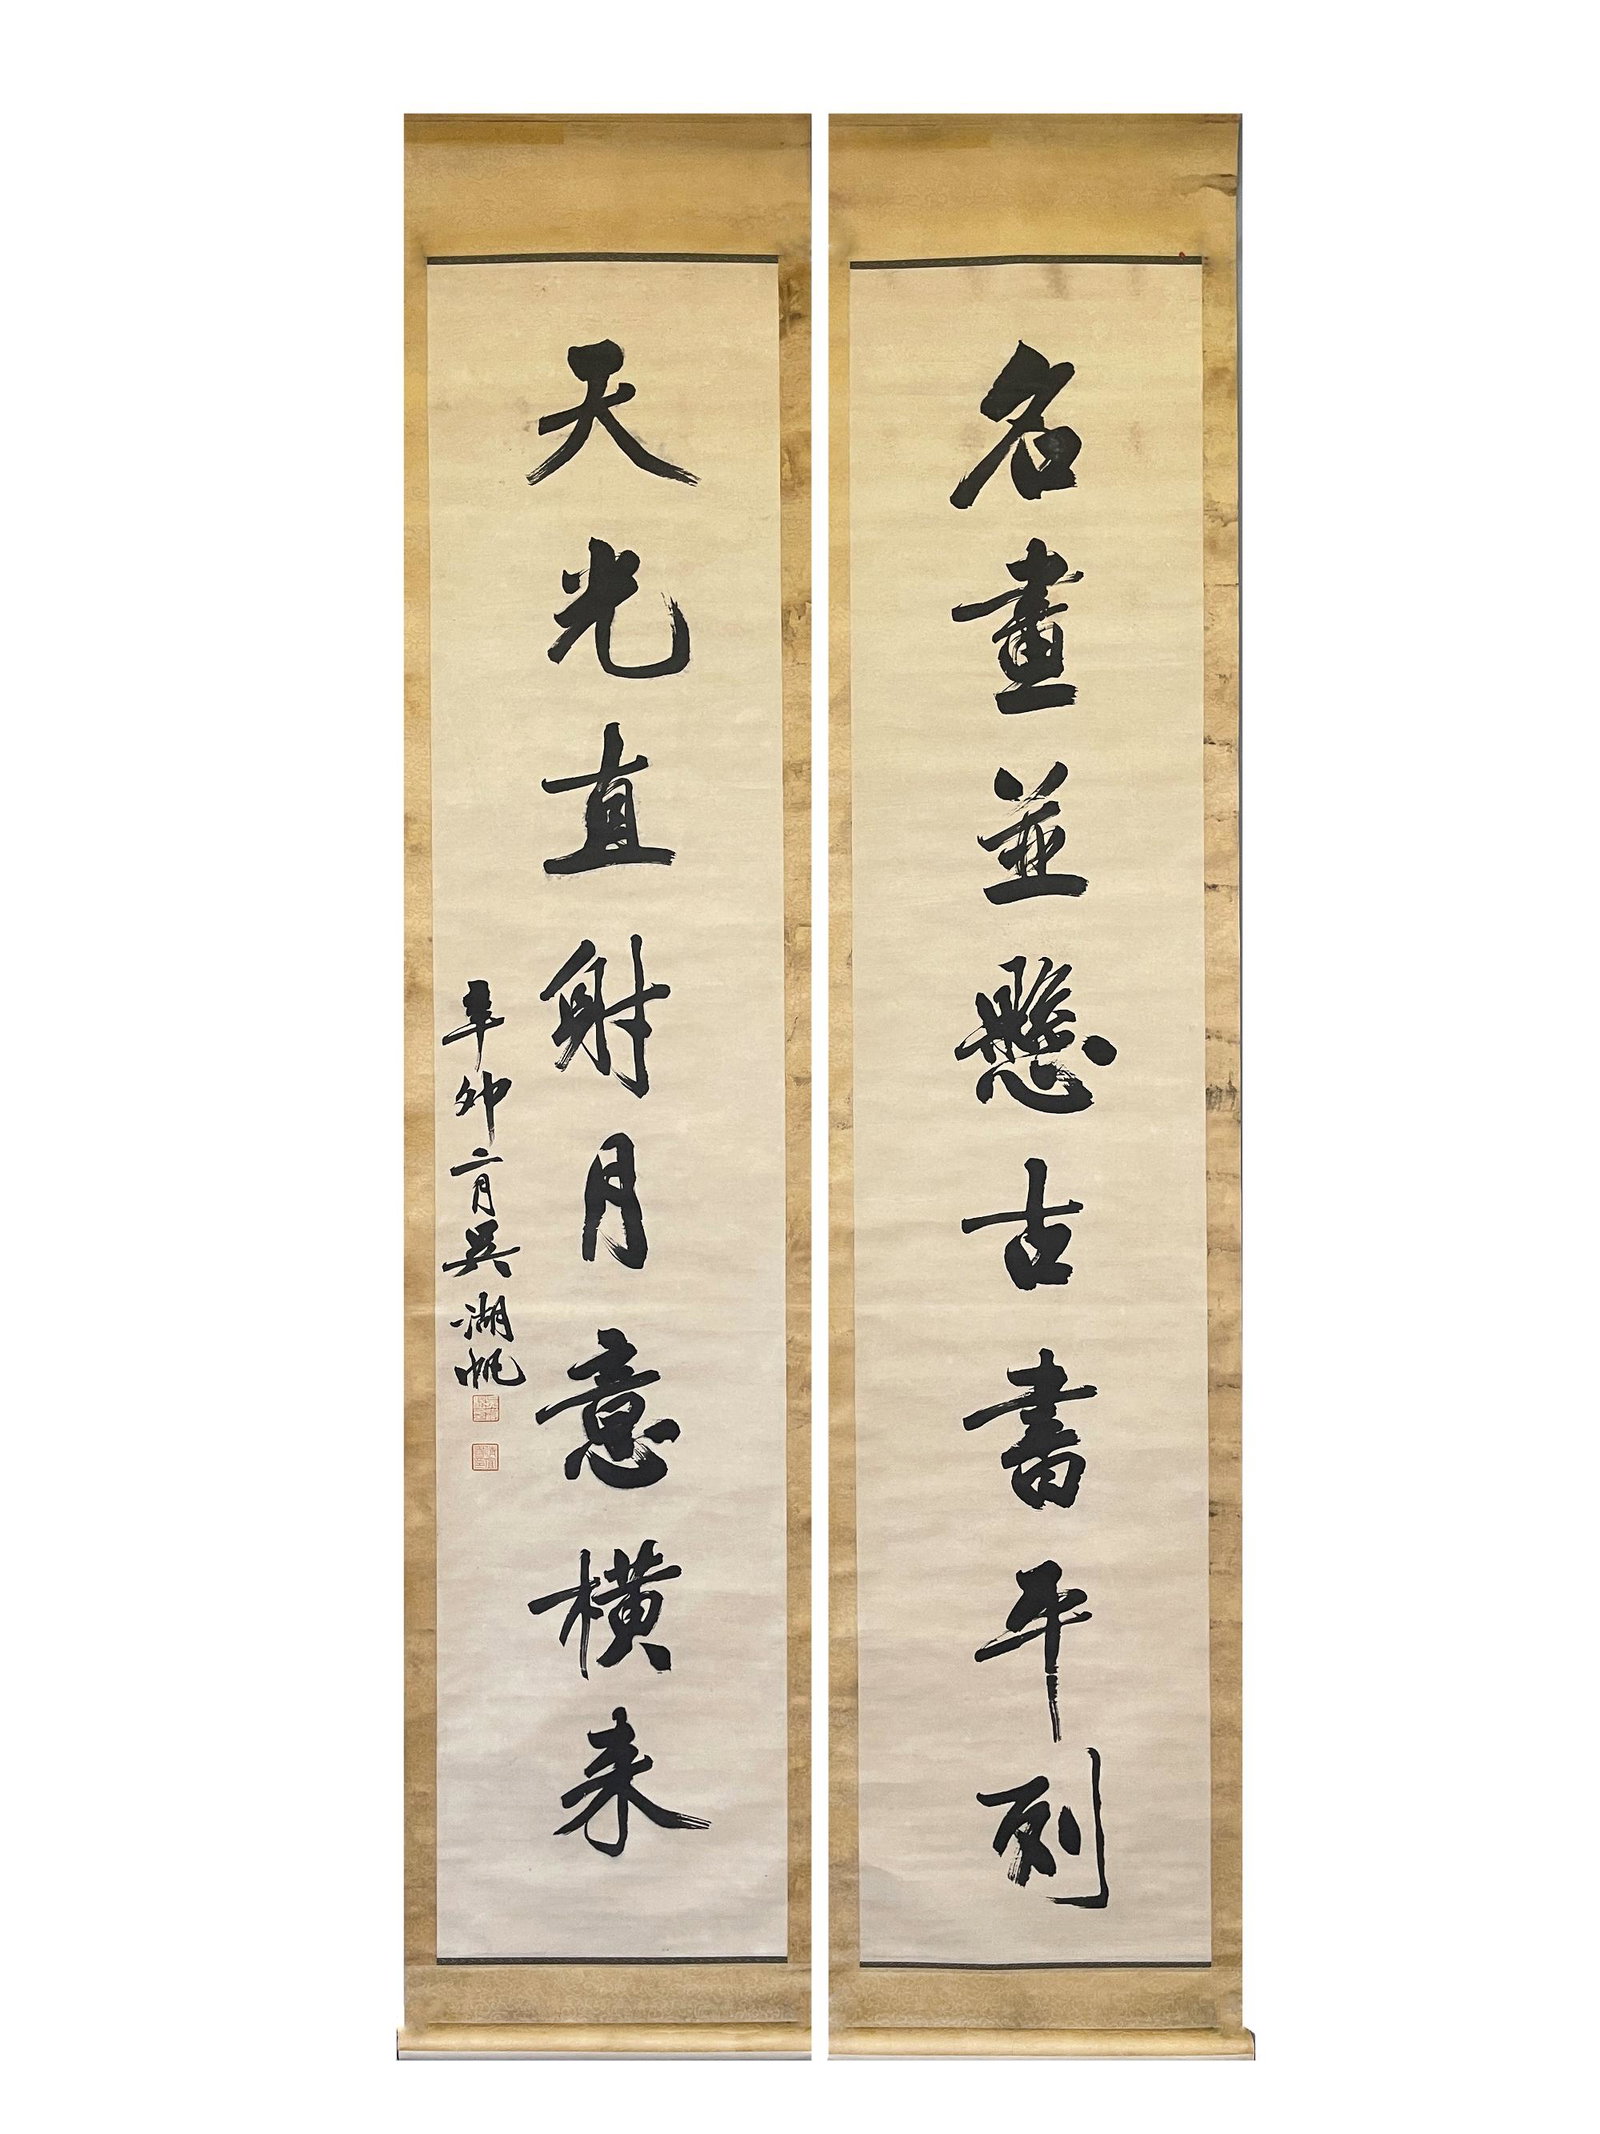 名畫並懸古書平列
天光直射月意橫来
辛卯二月吳湖帆